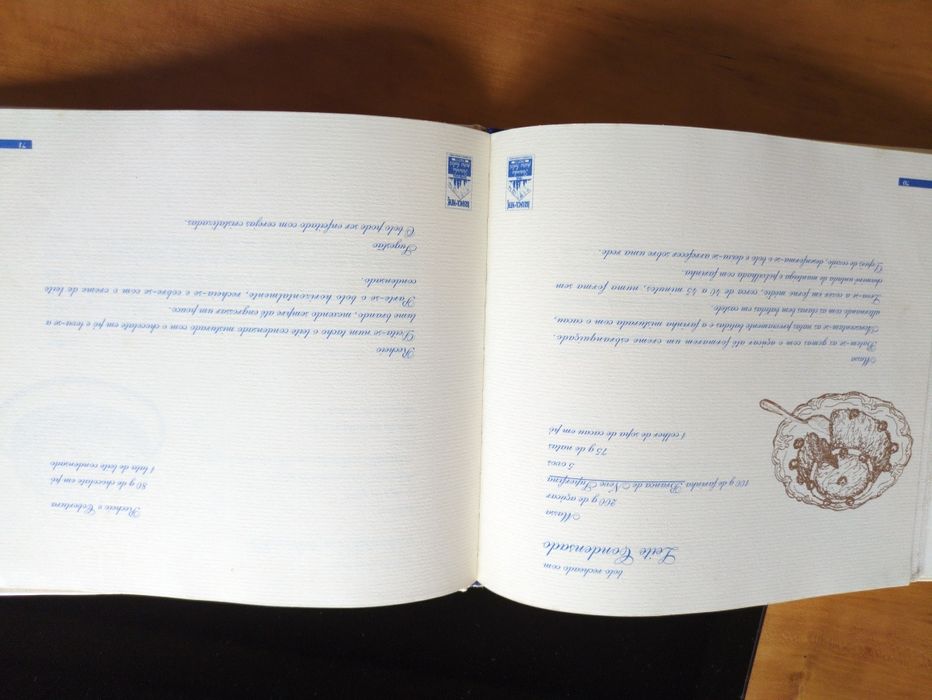 bolo recheado com
Leite Condensado
Massa
200 g de açúcar
100 g de farinha Branca de Neve Superfina
5 ovos
75 g de natas
1 colher de sopa de cacau em pó
Massa
Batem-se as gemas com o açúcar até formarem um creme esbranquiçado.
Acrescentam-se as natas, previamente batidas e a farinha misturada com o cacau,
alternando com as claras bem batidas, em castelo.
Leva-se a cozer em forno médio, cerca de 40 a 45 minutos, numa forma sem
chaminé untada de manteiga e polvilhada com farinha.
Depois de cozido, desenforma-se o bolo e deixa-se arrefecer sobre uma rede.
BRANCA DE NEVE
70
Recheio e Cobertura
80 g de chocolate em pó
1 lata de leite condensado
Recheio
Deita-se num tacho o leite condensado misturado com o chocolate em pó e leva-se a
lume brando, mexendo sempre até engrossar um pouco.
Parte-se o bolo horizontalmente, recheia-se e cobre-se com o creme de leite
condensado.
Sugestão
O bolo pode ser enfeitado com cerejas cristalizadas.
BRANCA DE NEVE
71